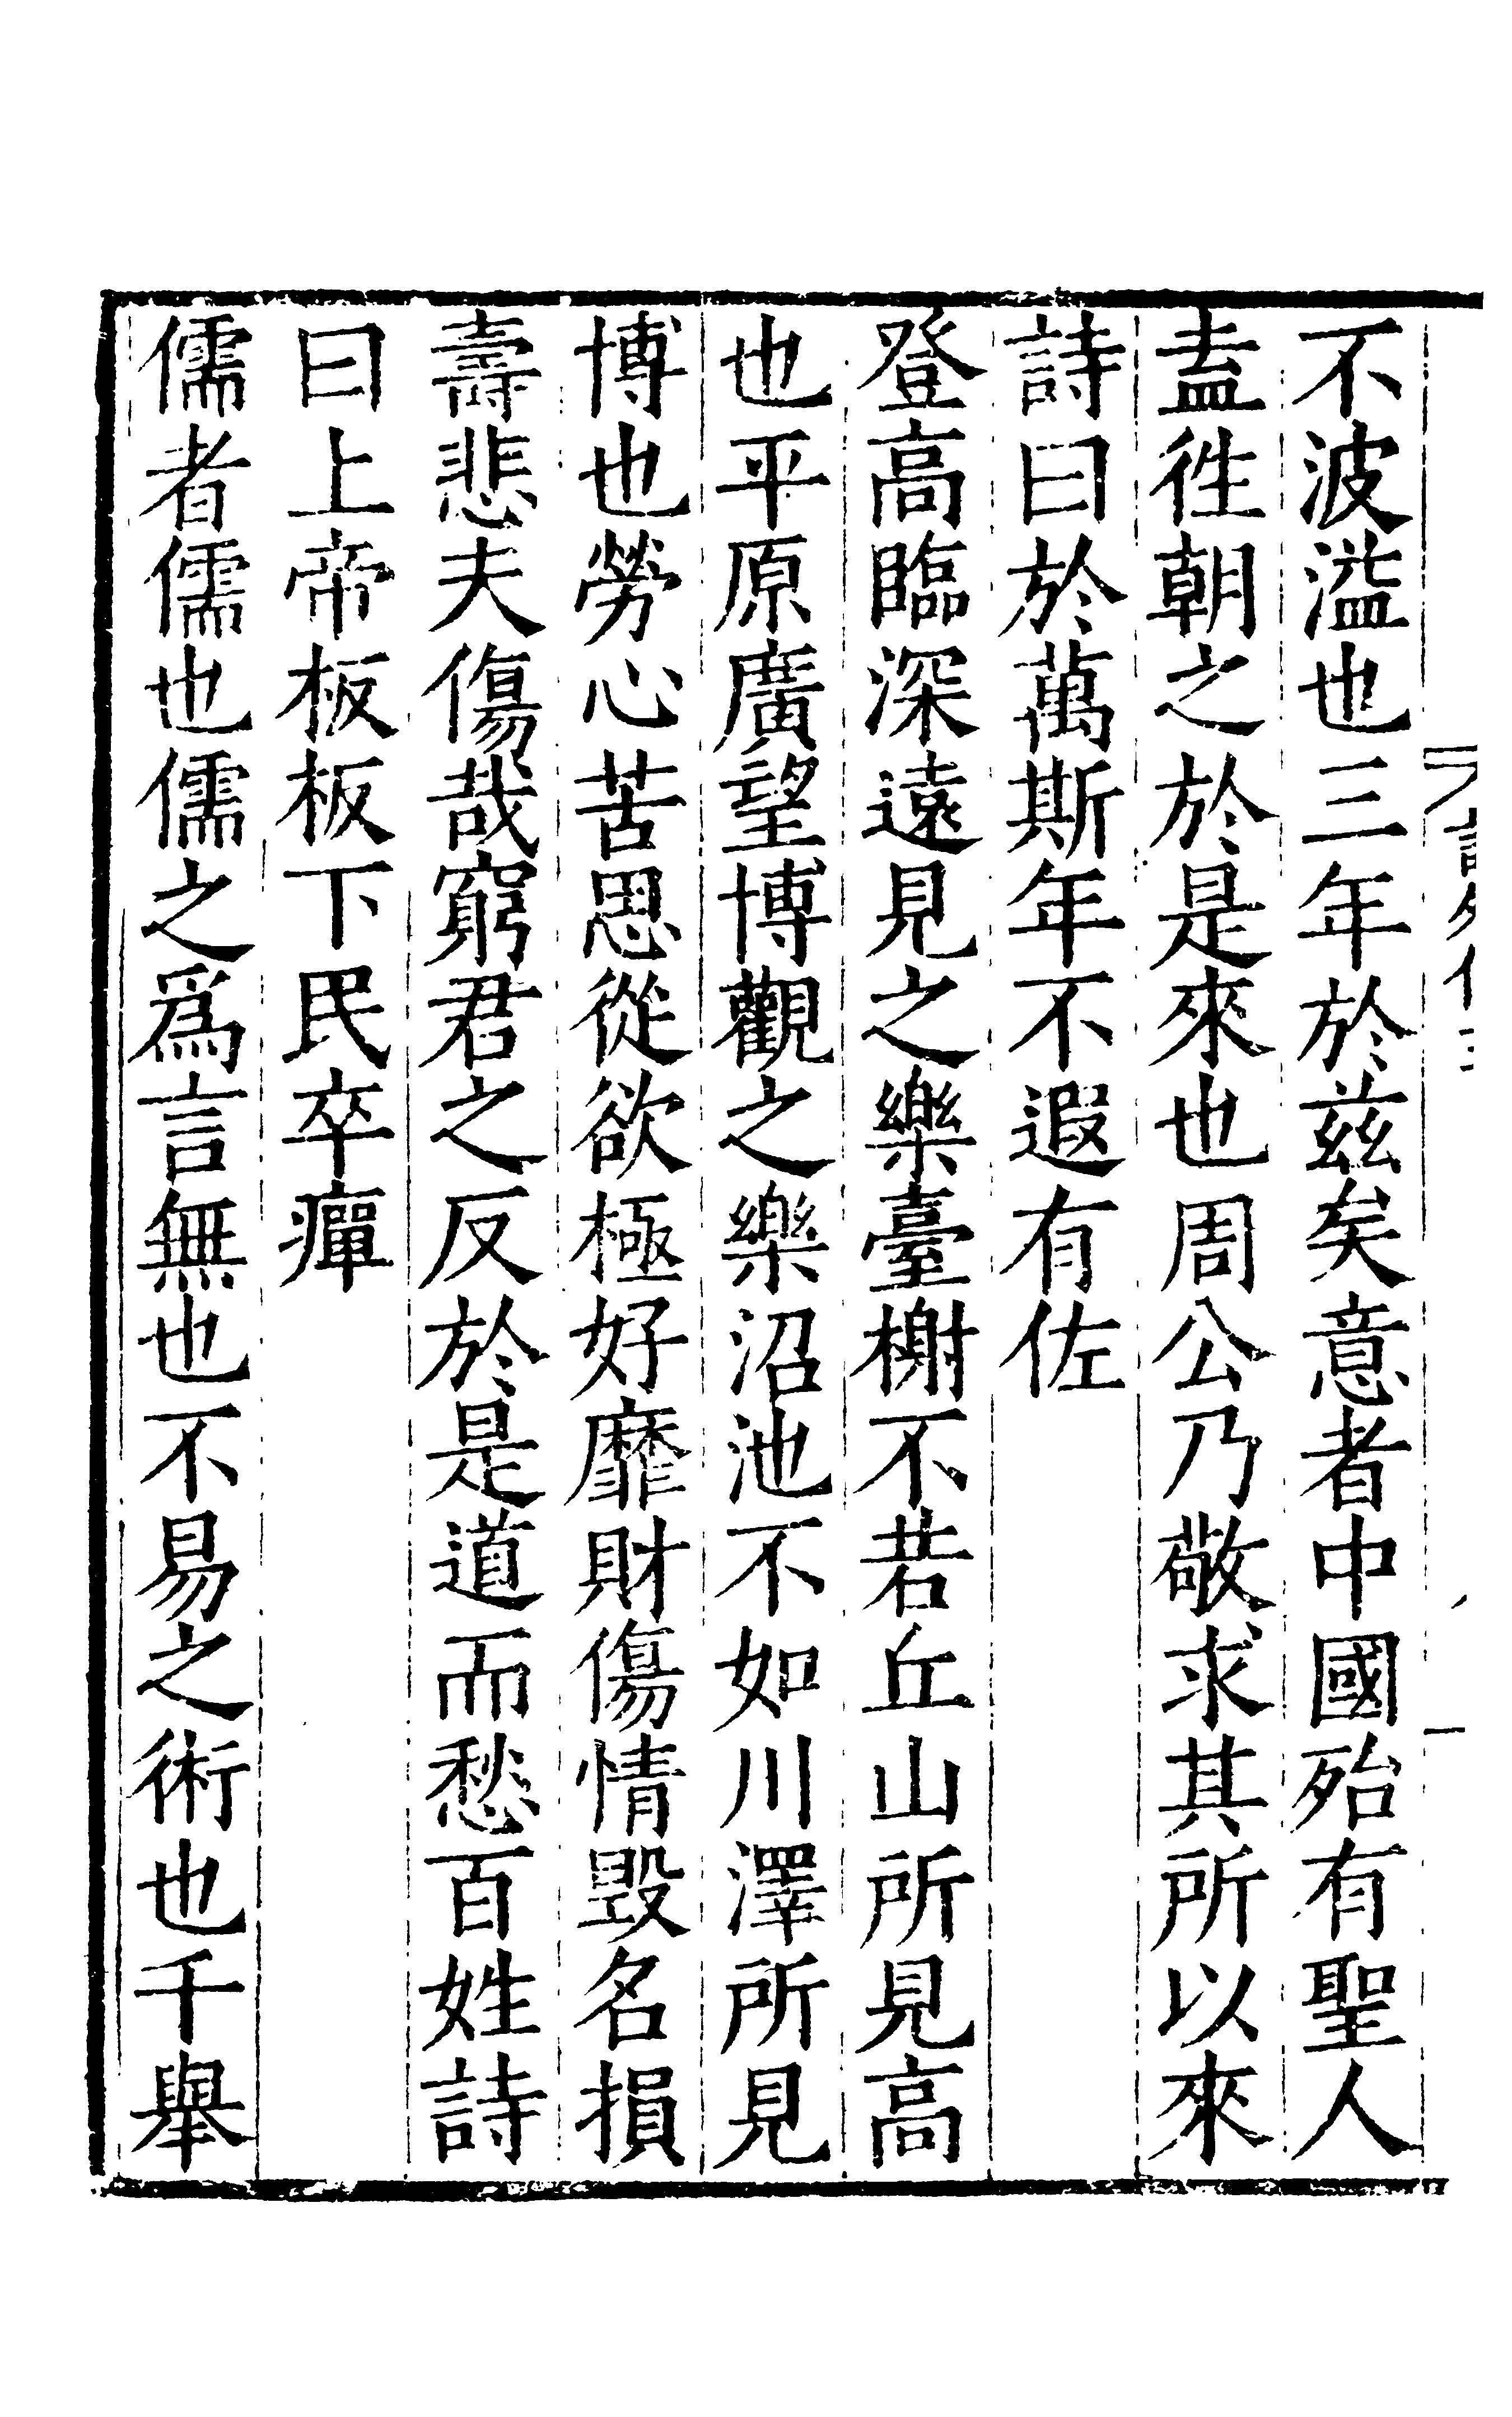 不波溢也三年於兹矣意者中國殆有聖人
盍徃朝之於是來也周公乃敬求其所以來
詩曰於萬斯年不遐有佐
登高臨深遠見之樂臺榭不若丘山所見高
也平原廣望博觀之樂沼池不如川澤所見
博也勞心苦思從欲極好靡財傷情毀名損
壽悲夫傷哉窮君之反於是道而愁百姓詩
曰上帝板板下民卒癉
儒者儒也儒之爲言無也不易之術也千舉